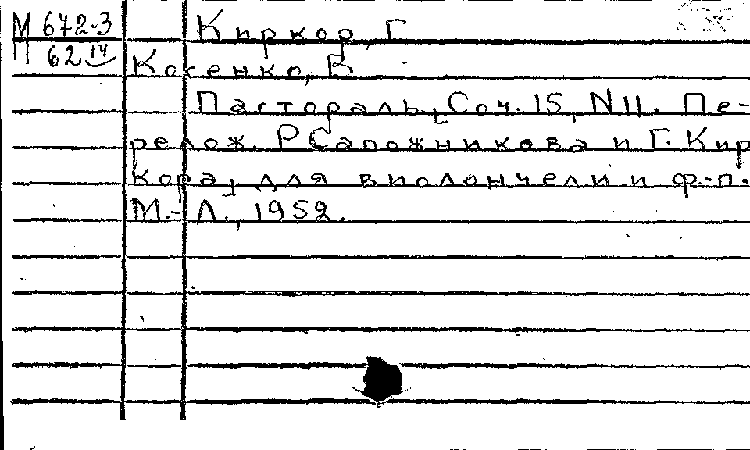 М 672-3
62 IV
Киркор, Г.
Косенко, В.
Пастораль, Соч. 15, N11. Пе-
релож. Р Сапожникова и Г. Кир
кора, для виолончели и ф-п.
М.-Л., 1952.